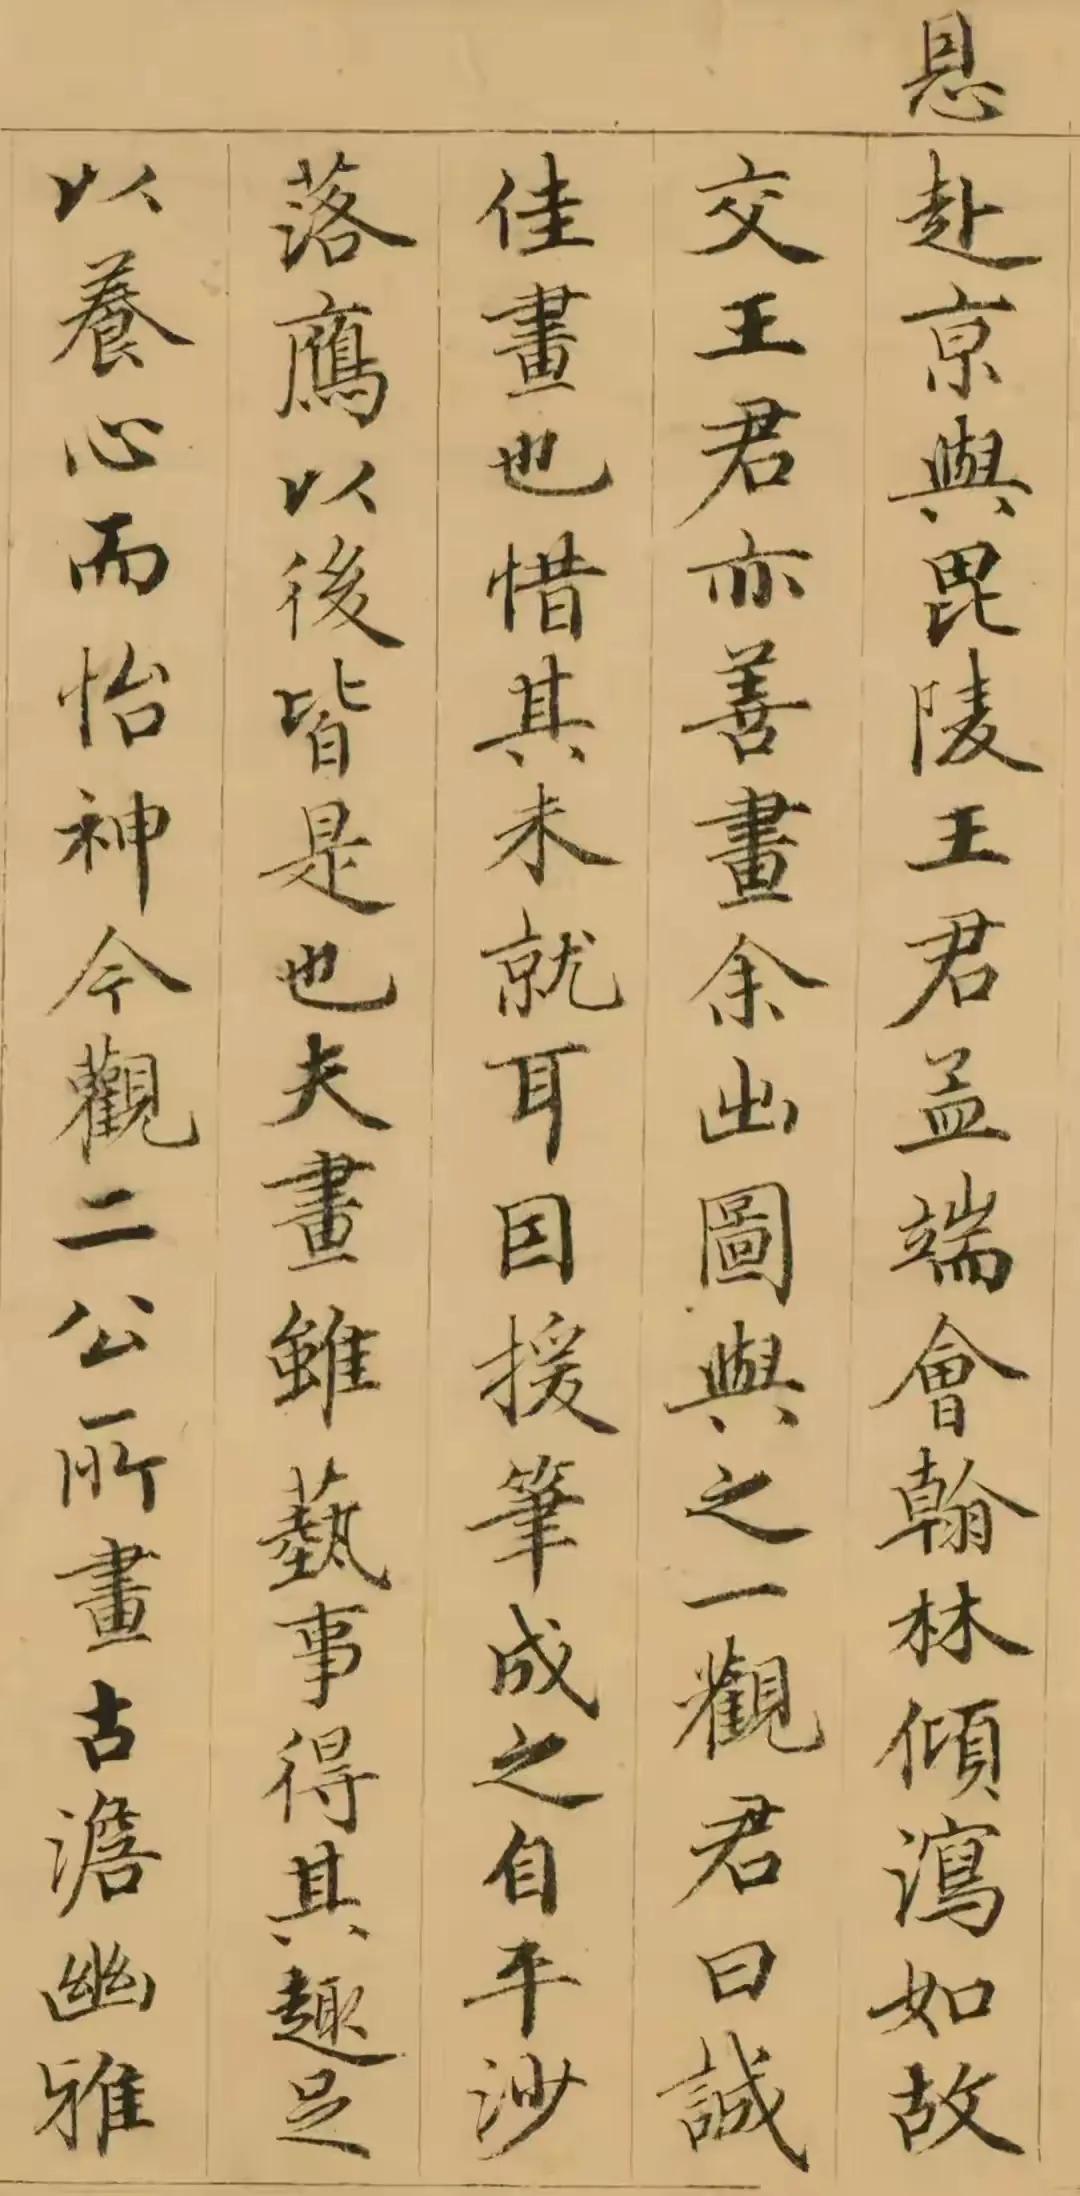 恩
赴京與毘陵王君孟端會翰林傾瀉如故
交王君亦善畫余出圖與之一觀君曰誠
佳畫也惜其未就耳因援筆成之自平沙
落鴈以後皆是也夫畫雖藝事得其趣足
以養心而怡神今觀二公所畫古澹幽雅